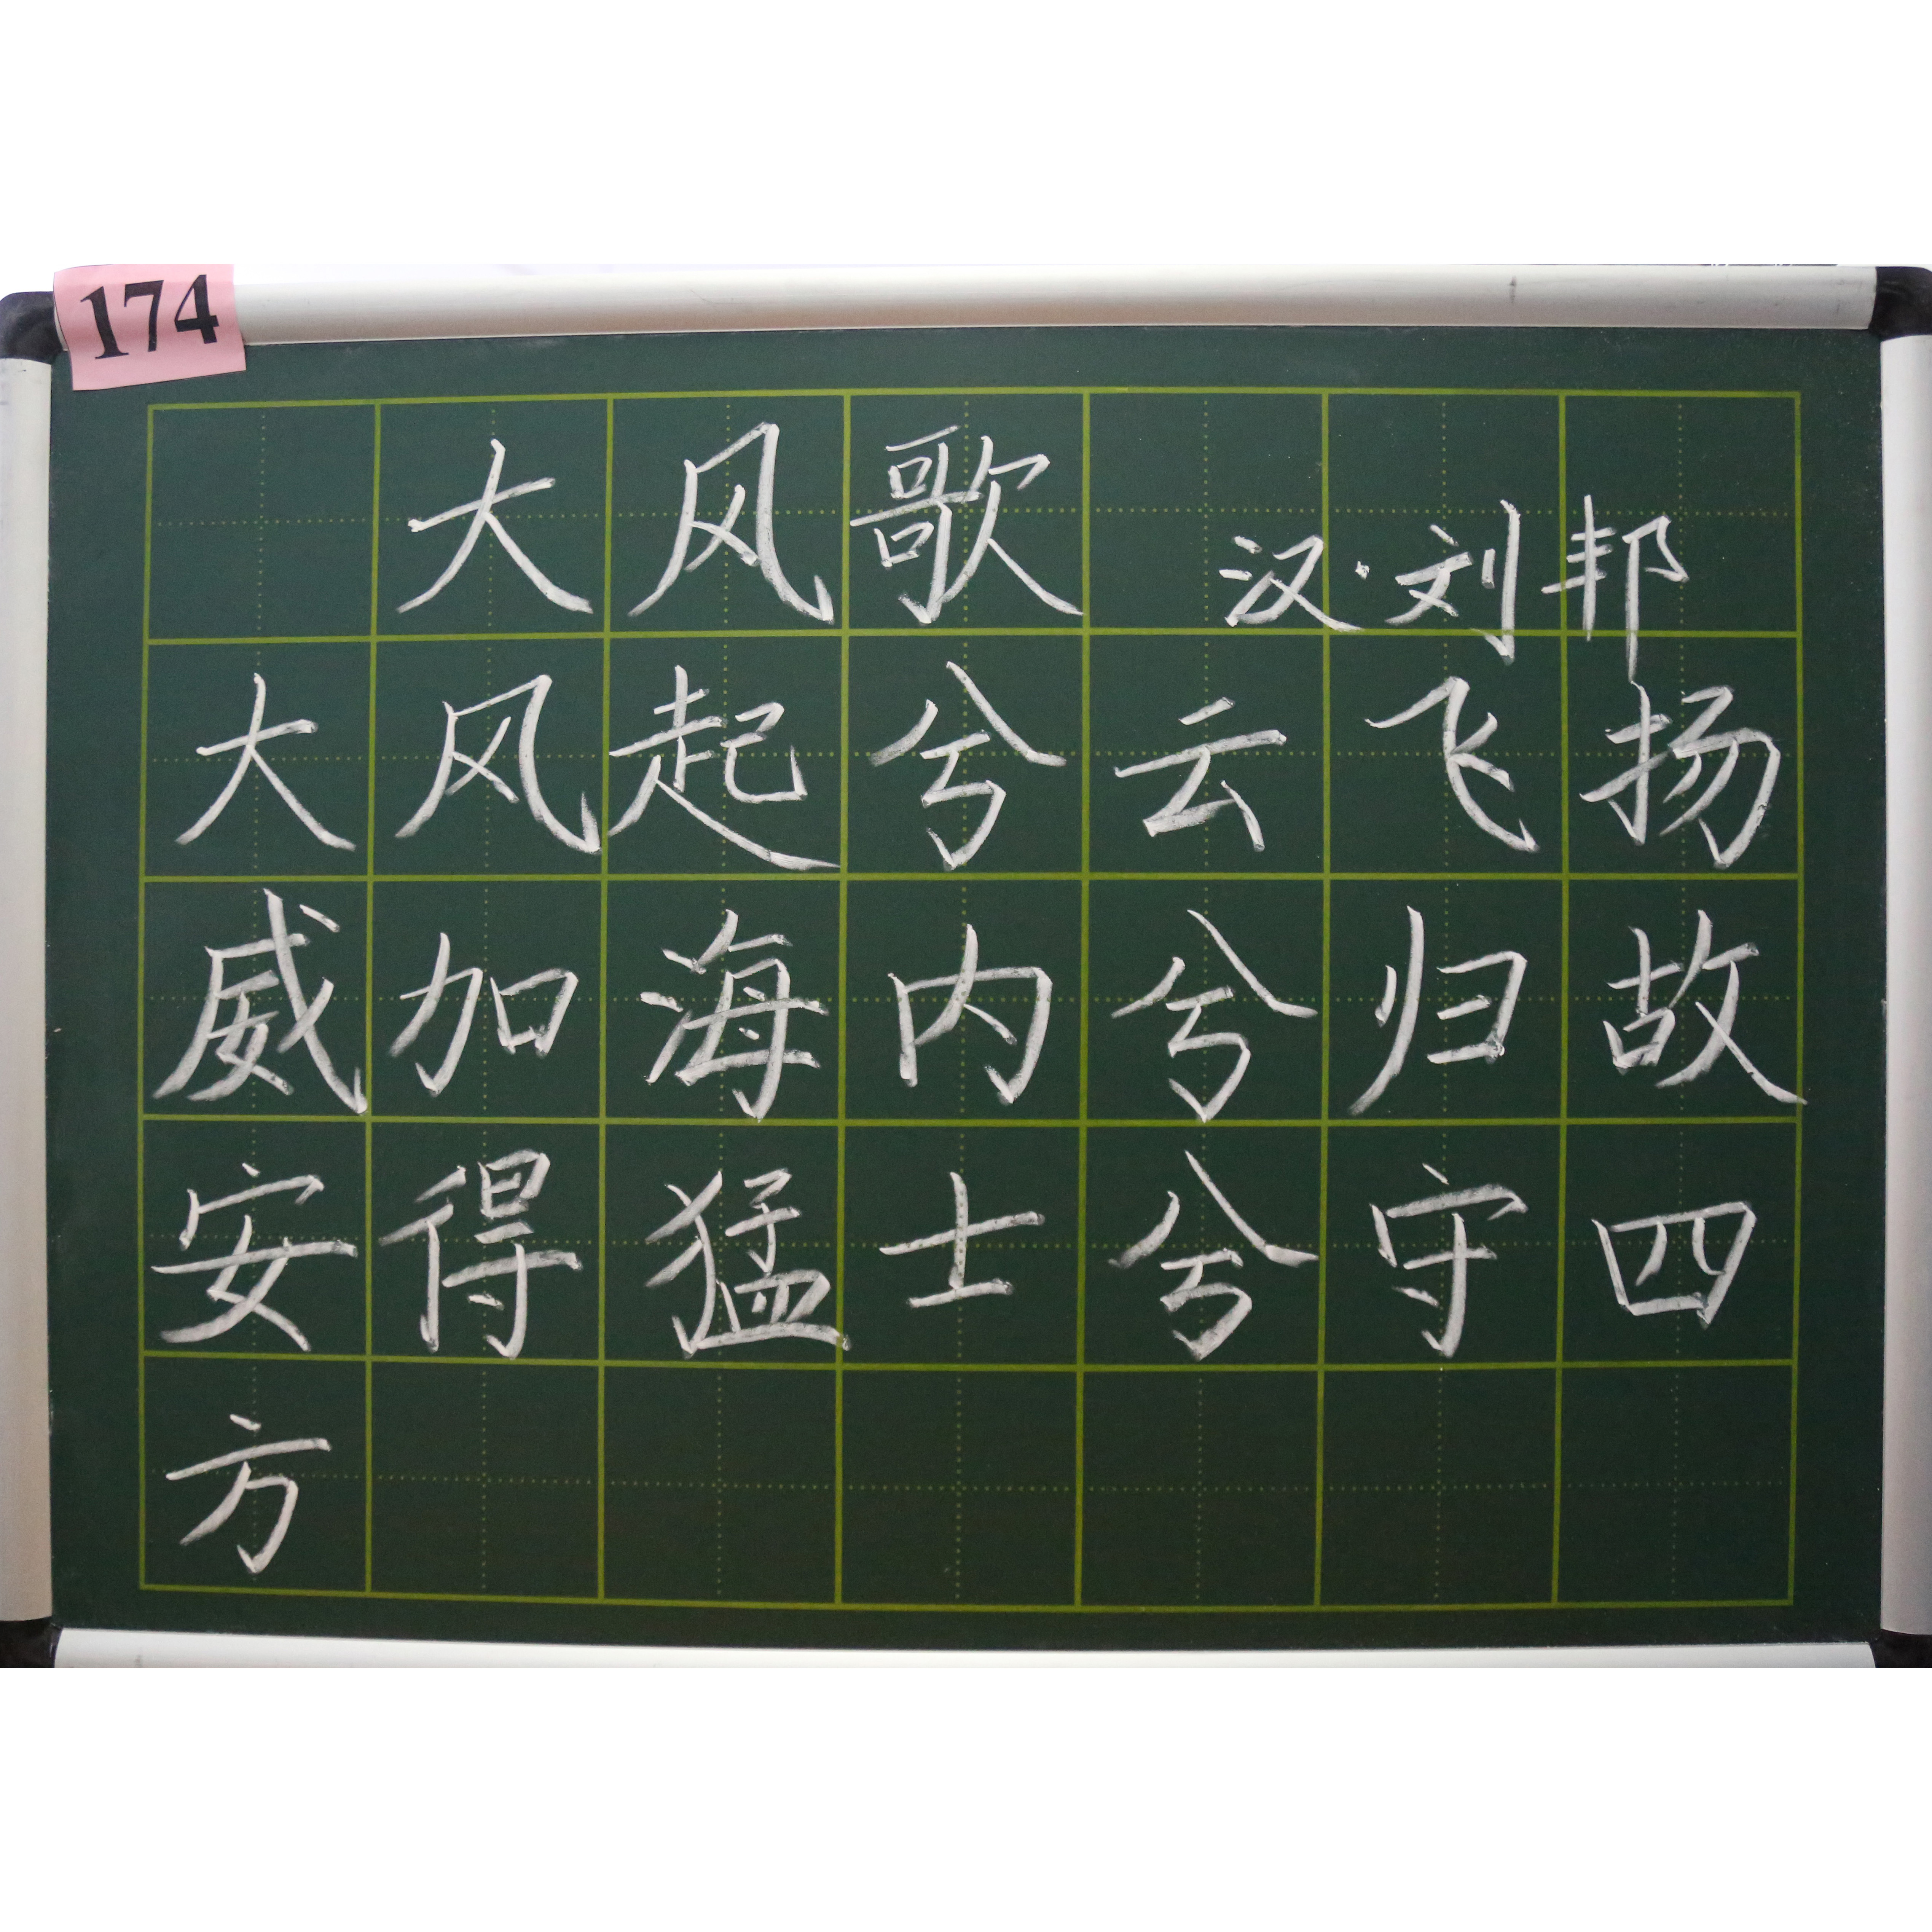 174
大风歌
汉·刘邦
大风起兮云飞扬
威加海内兮归故
安得猛士兮守四
方